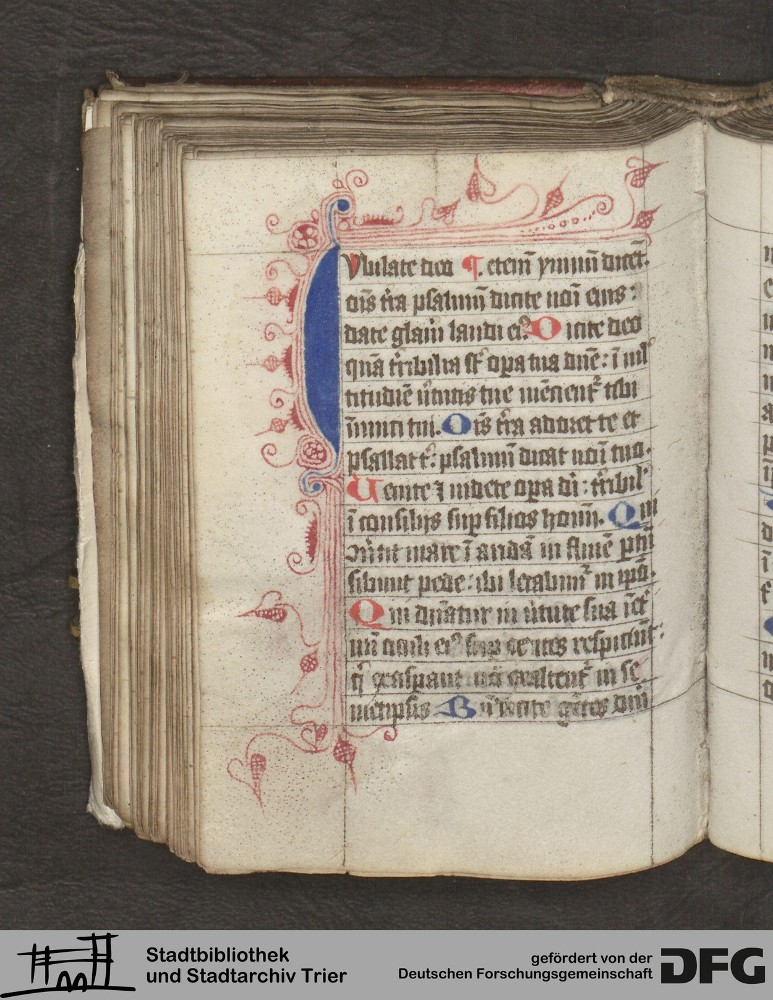 Iubilate deo ¶. etem̅ ymnu̅ dicet̅.
o̅is t̅ra psalmu̅ dicite no̅i eius :
date gl̅am laudi eiꝰ. Dicite deo
qua̅ t̅ribilia s̅t op̅a tua dn̅e : i̅ mĺ
titudi̅e ụ̃tutis tue me̅cient̅ tibi
i̅imici tui. O̅is t̅ra adoret te et
psallat t̅ : psalmu̅ dicat no̅i tuo.
Uenite ⁊ uidete op̅a di̅ : t̅ribil̅
i̅ consiliis sup̅ filios homi̅. Qui
ꝯu̅tit mare i̅ arida̅ in flui̅e p̅t̅n
sibunt pede : ibi letabimur̅ in ip̅o.
Qui dn̅atur in u̅tute sua i̅et̅
nu̅ oculi eiꝰ sup̅ gentes respiciu̅t :
q̅ exaspant no̅ exaltent̅ in se
metipsis Bn̅dicite ge̅tes dm̅
Stadtbibliothek
und Stadtarchiv Trier
gefördert von der
Deutschen Forschungsgemeinschaft DFG